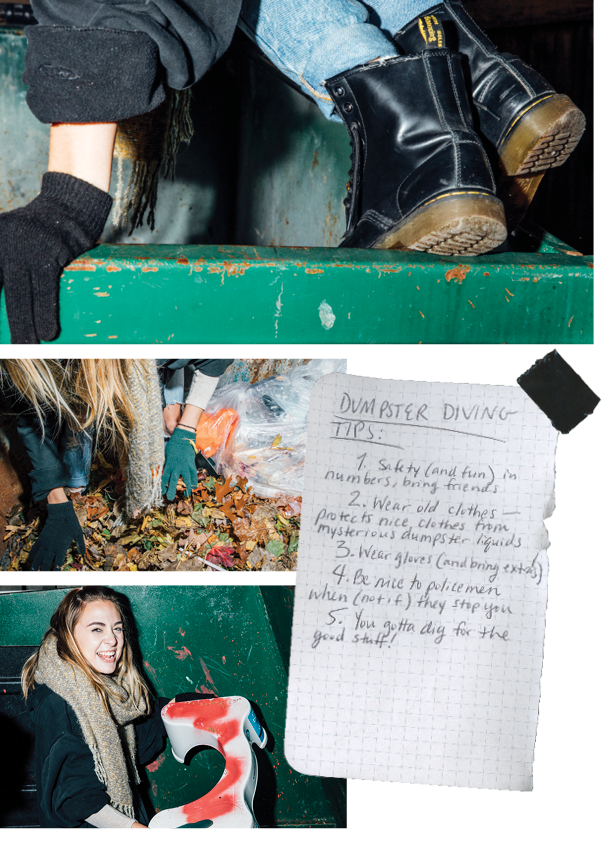 DUMPSTER DIVING
TIPS:
1. Safety (and fun) in
numbers, bring friends
2. Wear old clothes —
protects nice clothes from
mysterious dumpster liquids
3. Wear gloves (and bring extras)
4. Be nice to policemen
when (not if) they stop you
5. You gotta dig for the
good stuff!